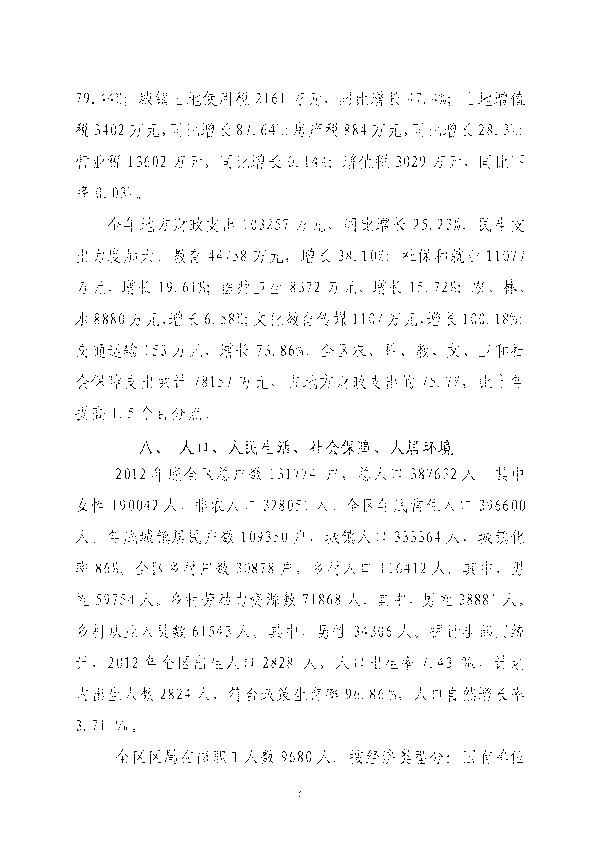 79.44%；城镇土地使用税 2161 万元，同比增长 47.4%；土地增值
税 3402 万元，同比增长 87.64%；房产税 884 万元，同比增长 28.3%；
营业税 13602 万元，同比增长 0.14%；增值税 3029 万元，同比下
降 0.03%。
全年地方财政支出 103257 万元，同比增长 25.23%，民生支
出力度加大，教育 44758 万元，增长 38.10%；社保和就业 11077
万元，增长 19.61%；医疗卫生 8372 万元，增长 15.72%；农、林、
水 8880 万元，增长 6.58%；文化教育传媒 1107 万元，增长 100.18%；
交通运输 153 万元，增长 73.86%。全区农、科、教、文、卫和社
会保障支出累计 78157 万元，占地方财政支出的 75.7%，比上年
提高 1.5 个百分点。
八、 人口、人民生活、社会保障、人居环境
2012 年底全区总户数 131774 户，总人口 387632 人，其中
女性 190042 人，非农人口 328051 人，全区年底常住人口 396600
人。年底城镇居民户数 109350 户，城镇人口 333364 人，城镇化
率 86%。全区乡村户数 30878 户，乡村人口 116412 人，其中，男
性 59754 人。乡村劳动力资源数 71868 人，其中，男性 38881 人。
乡村从业人员数 61543 人，其中，男性 34306 人。据计生部门统
计，2012 年全区出生人口 2828 人，人口出生率 7.43 ‰，计划
内出生人数 2824 人，符合政策生育率 96.86%，人口自然增长率
3.71 ‰。
全区区属在岗职工人数 9680 人，按经济类型分：国有单位